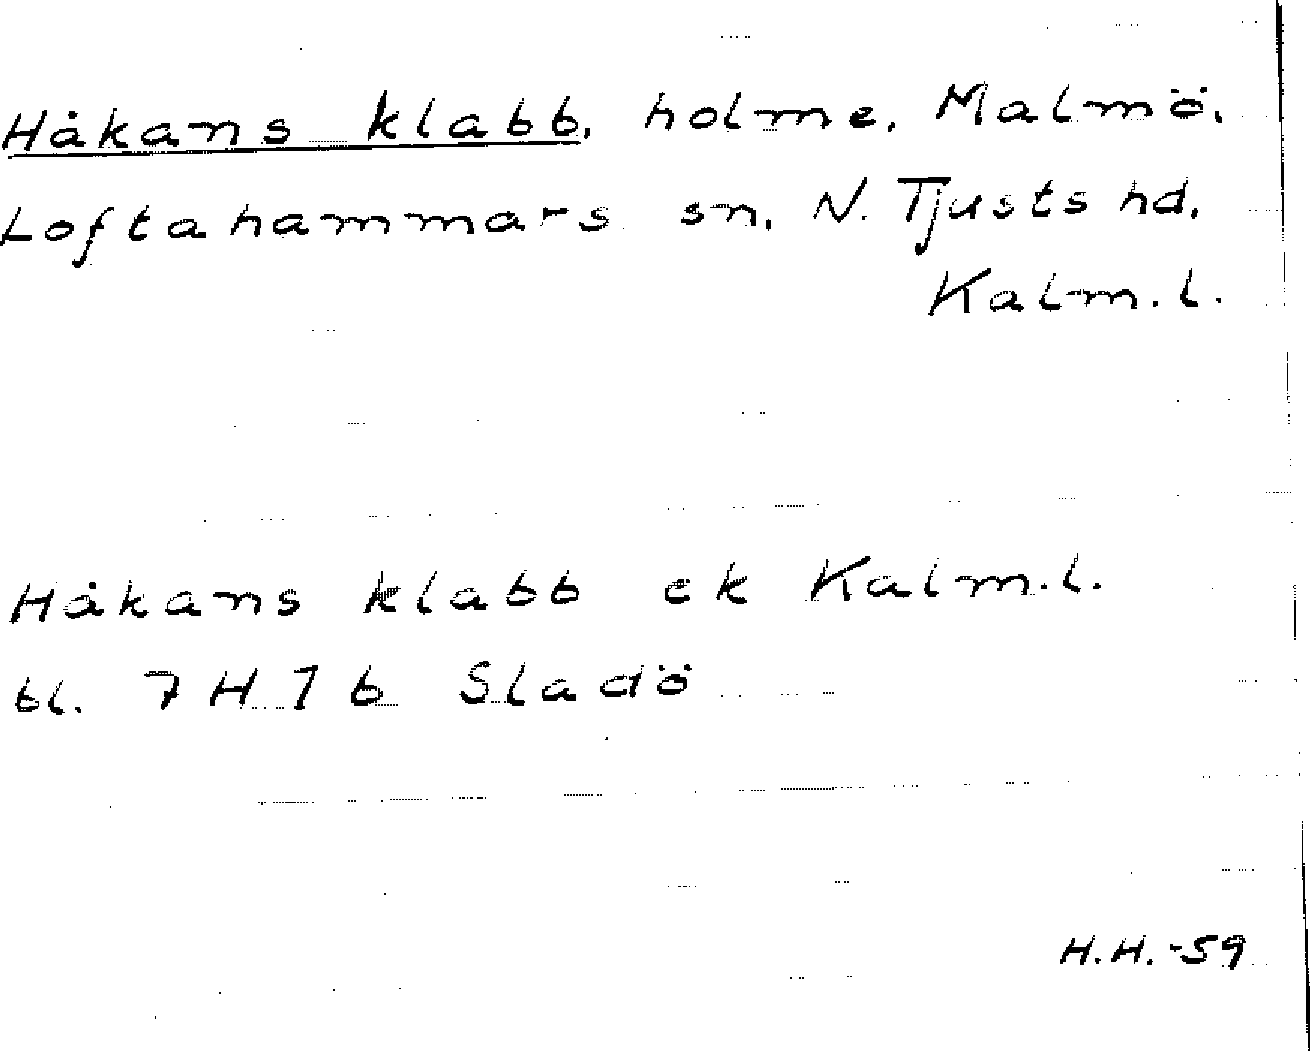 Håkans klabb, holme, Malmö,
Loftahammars sn, N. Tjusts hd,
Kalm. l.
Håkans klabb ek Kalm. l.
bl. 7 H 7 b Sladö
H.H. -59